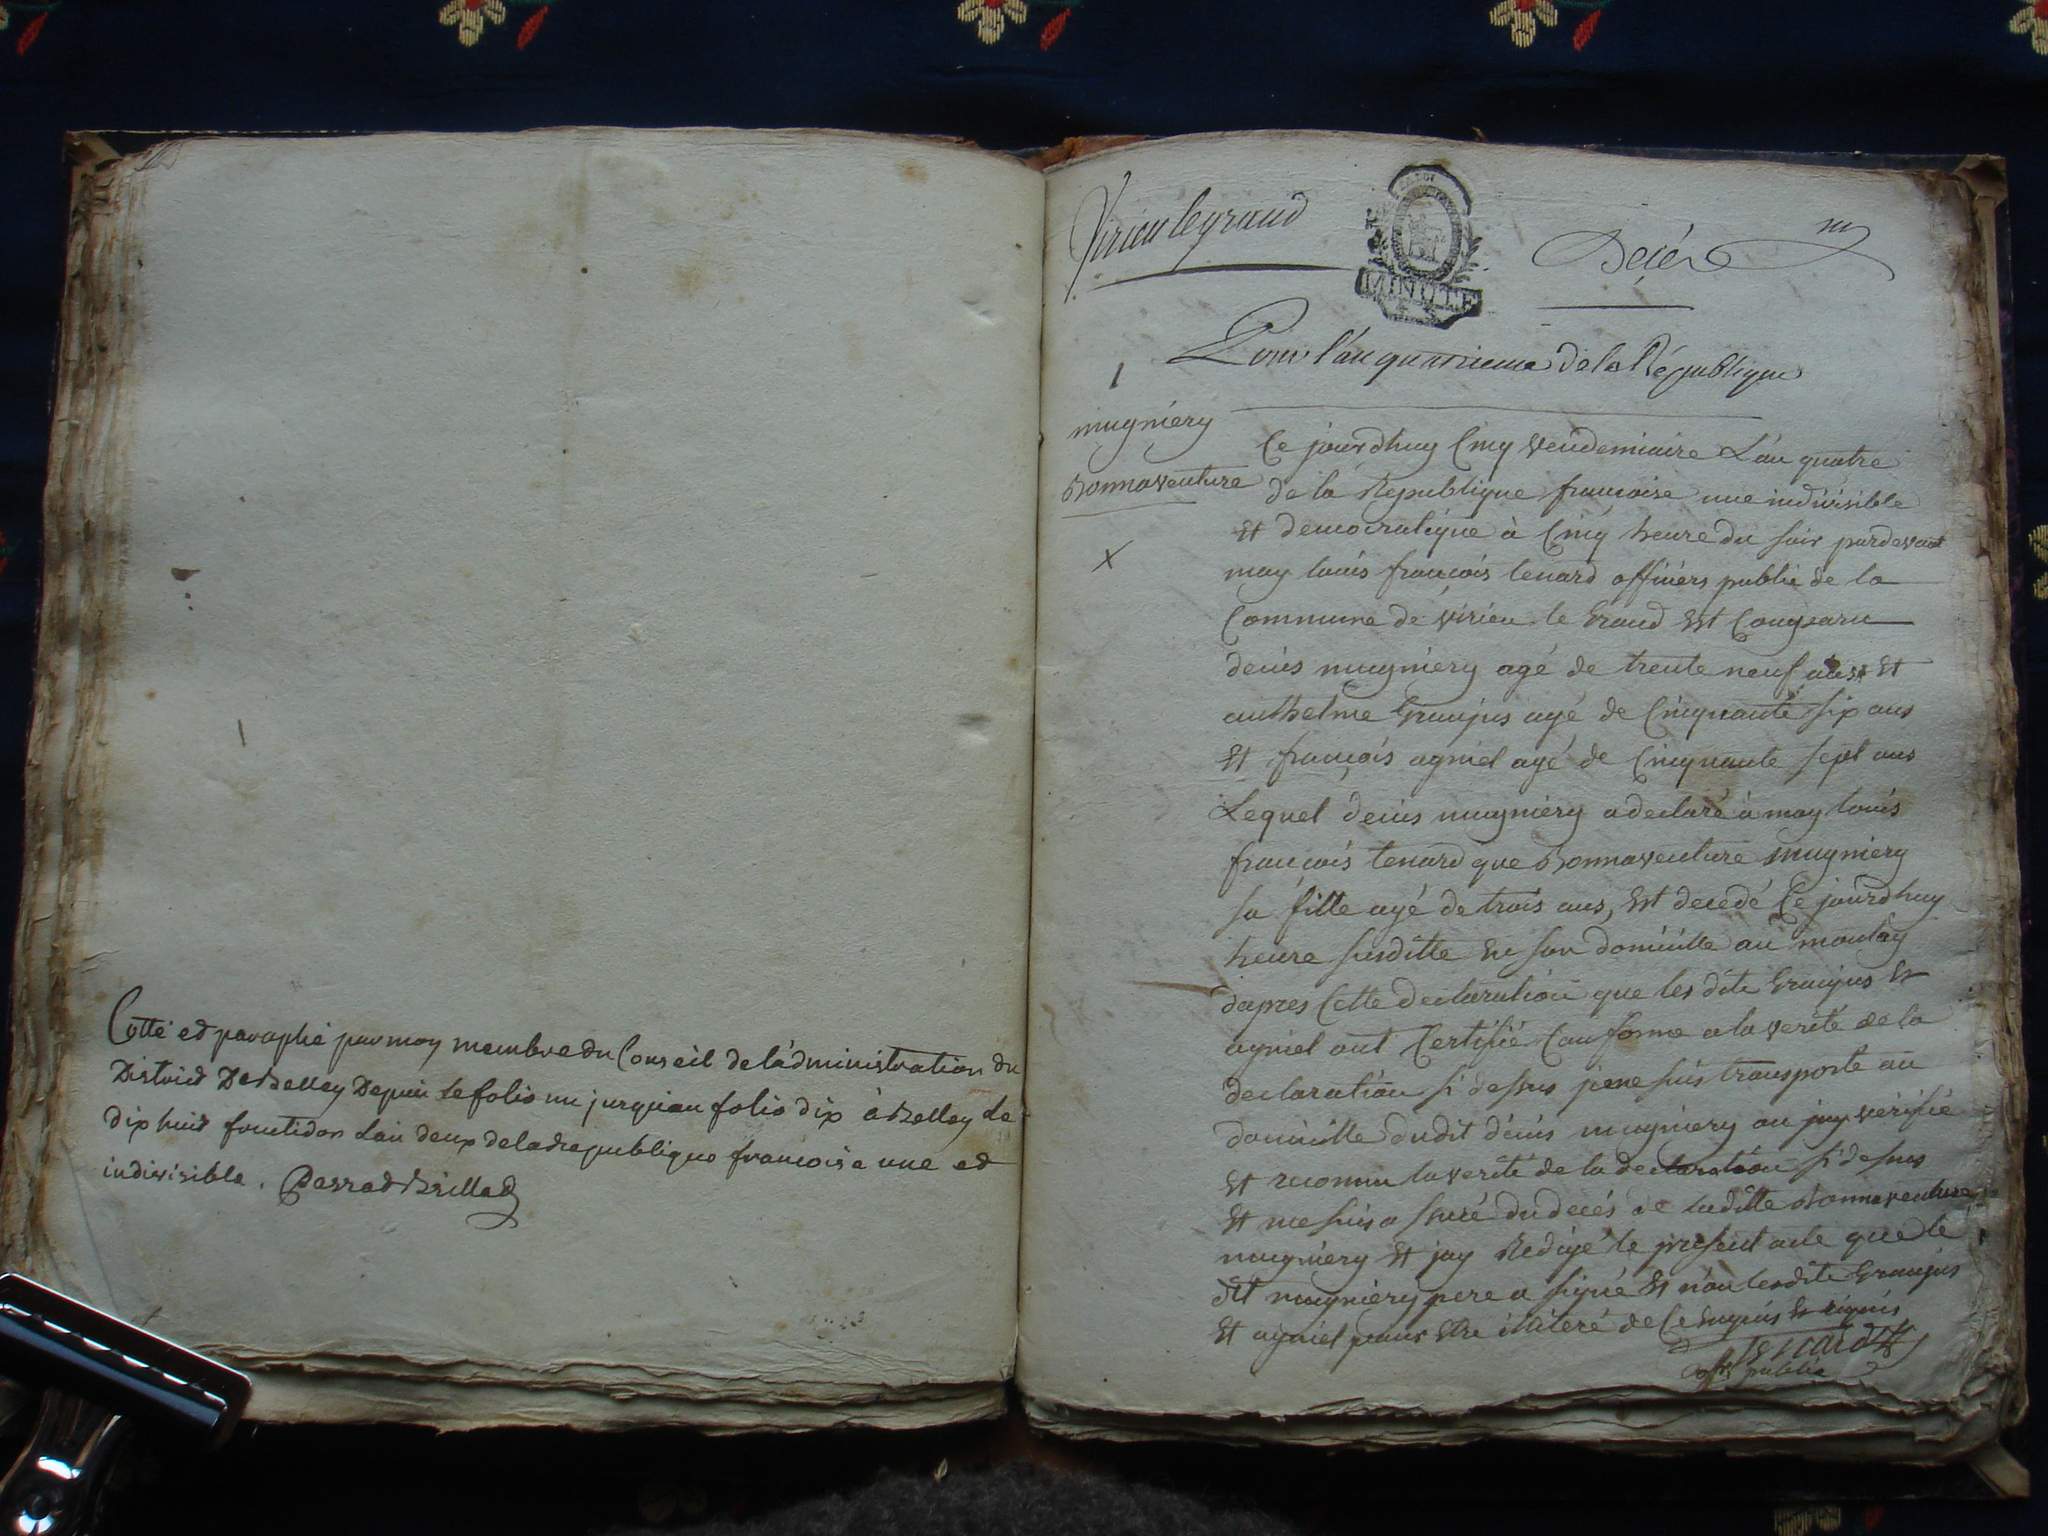 Cotté et paraphé par moy membre du Conseil de l'administration du
District De Belley Depuis le folio un jusquiau folio dix à Belley Le
dix huit fructidor Lan deux de la republique francoise une et
indivisible.
Virieu legrand
MINUTE
Décés
Pour l'an quatrieme de la République
1
mugniery
Bonnaventure
X
Ce jourdhuy Cinq vendemiaire L'an quatre
de la Republique francoise une indivisible
Et democratique à Cinq heure du soir pardevant
moy louis françois tenard officiers public de la
Commune de virieu le Grand Est Comparu
denis mugniery agé de trente neuf ans Et
anthelme Granjus agé de Cinquante six ans
Et françois agniel agé de Cinquante sept ans
Lequel denis mugniery a declaré à moy louis
françois tenard que Bonnaventure mugniery
sa fille agé de trois ans, Est decedé Ce jourdhuy
heure susditte En son domicille au
dapres Cette declaration que les dits Granjus Et
agniel ont Certifié Conforme a la verité de la
declaration si dessus je me suis transporté au
domicille dudit denis mugniery ou jay verifié
Et reconnu la verité de la declaration si dessus
Et me suis assuré du decés de laditte Bonnaventure
mugniery Et jay Redigé le present acte que le
dit mugniery pere a signé Et non lesdits Granjus
Et agniel pour Estre illiteré de Ce Enquis Et
tenard
offr public